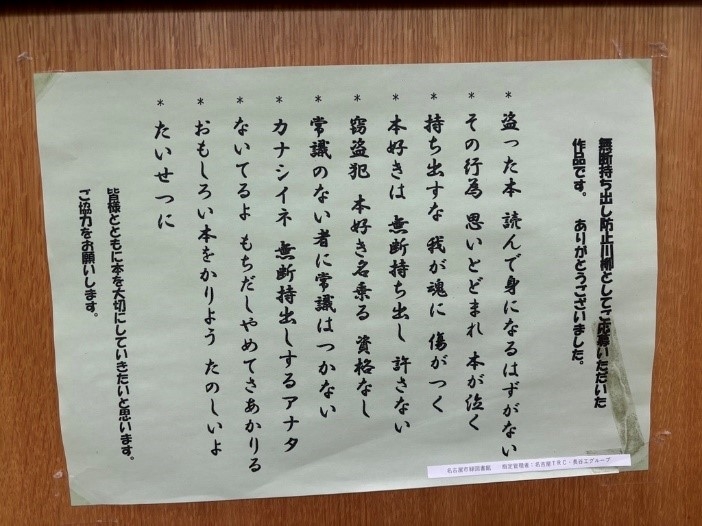 無断持ち出し防止川柳としてご応募いただいた
作品です。　ありがとうございました。
＊盗った本　読んで身になるはずがない
＊その行為　思いとどまれ　本が泣く
＊持ち出すな　我が魂に　傷がつく
＊本好きは　無断持ち出し　許さない
＊窃盗犯　本好き名乗る　資格なし
＊常識のない者に常識はつかない
＊カナシイネ　無断持出しするアナタ
＊ないてるよ　もちだしやめてさあかりる
＊おもしろい本をかりよう　たのしいよ
＊たいせつに
皆様とともに本を大切にしていきたいと思います。
ご協力をお願いします。
名古屋市緑図書館　指定管理者：名古屋TRC・長谷工グループ